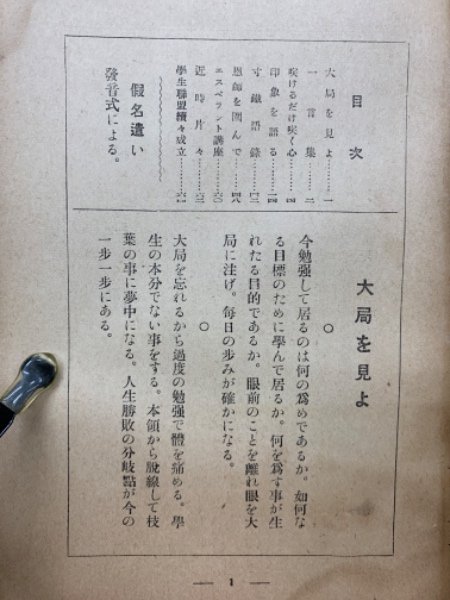 目次
大局を見よ………一
一言集………二
咲けるだけ咲く心………四
印象を語る………一四
寸鐵語錄………四三
恩師を圍んで………四八
エスペラント講座………六〇
近時片々………六二
學生聯盟續々成立………六四
假名遣い
發音式による。
大局を見よ
○
今勉强して居るのは何の爲めであるか。如何な
る目標のために學んで居るか。何を爲す事が生
れたる目的であるか。眼前のことを離れ眼を大
局に注げ。每日の步みが確かになる。
○
大局を忘れるから過度の勉强で體を痛める。學
生の本分でない事をする。本領から脫線して枝
葉の事に夢中になる。人生勝敗の分岐點が今の
一步一步にある。
— 1 —